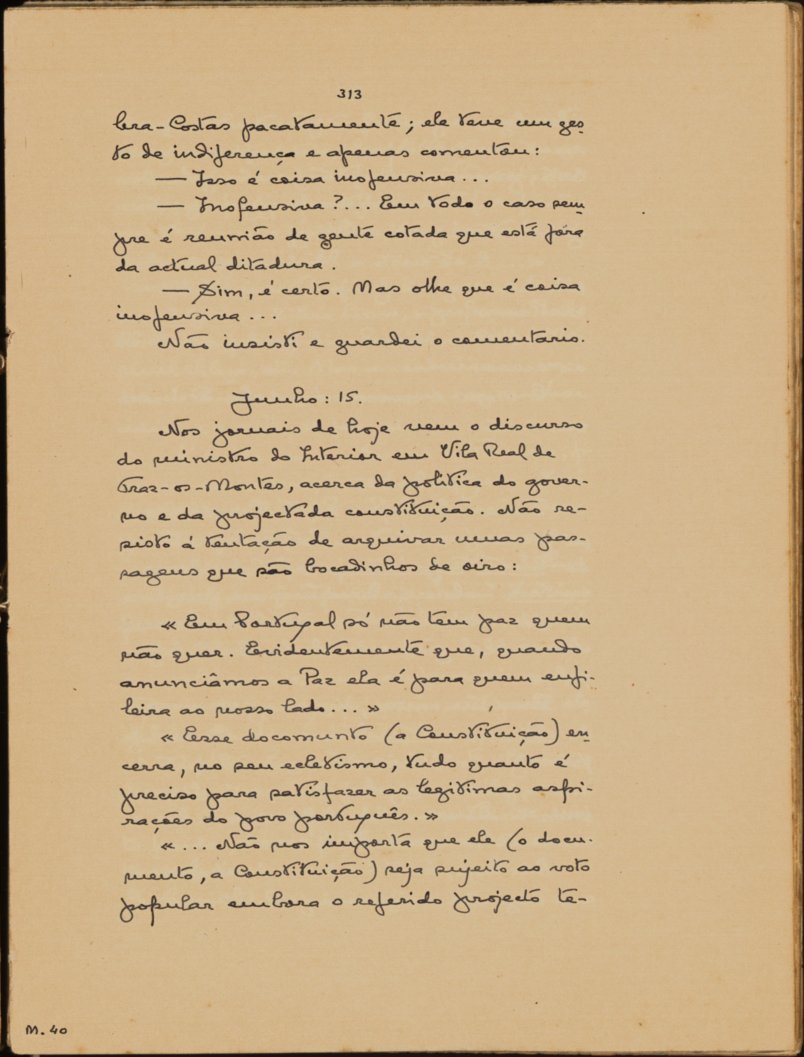 313
bra-Costas pacatamente; ele teve um ges-
to de indiferença e apenas comentou:
— Isso é coisa inofensiva...
— Inofensiva?... Em todo o caso sem-
pre é reunião de gente cotada que está fóra
da actual ditadura.
— Sim, é certo. Mas olhe que é coisa
inofensiva...
Não insisti e guardei o comentario.
Junho: 15.
Nos jornais de hoje vem o discurso
do ministro do Interior em Vila Real de
Traz-os-Montes, acerca da politica do gover-
no e da projectada constituição. Não re-
sisto á tentação de arquivar umas pas-
sagens que são bocadinhos de oiro:
« Em Portugal só não tem paz quem
não quer. Evidentemente que, quando
anunciâmos a Paz ela é para quem enfi-
leira ao nosso lado... »
« Esse documento (a Constituição) en-
cerra, no seu ecletismo, tudo quanto é
preciso para satisfazer as legitimas aspi-
rações do povo português. »
« ... Não nos importa que ele (o docu-
mento, a Constituição) seja sujeito ao voto
popular embora o referido projecto te-
M. 40